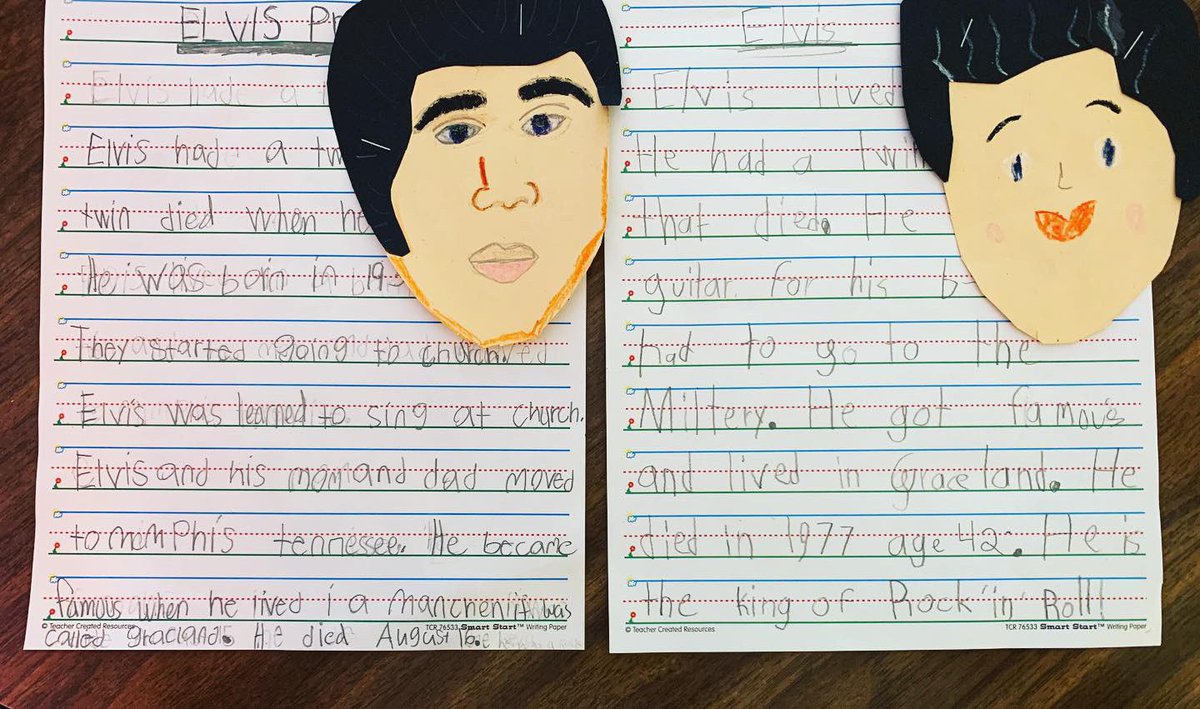 ELVIS Pr
Elvis had a
Elvis had a tw
twin died when he
He was born in 19
They started going to church.
Elvis was learned to sing at church.
Elvis and his mom and dad moved
to memphis tennessee. He became
famous when he lived i a manchen it was
called graciand. He died August 16.
© Teacher Created Resources
TCR 76533 Smart Start™ Writing Paper
Elvis
Elvis lived
He had a twin
that died. He
guitar for his b
had to go to the
Miltery. He got famous
and lived in Graceland. He
died in 1977 age 42. He is
the king of Rock 'in' Roll!
© Teacher Created Resources
TCR 76533 Smart Start™ Writing Paper